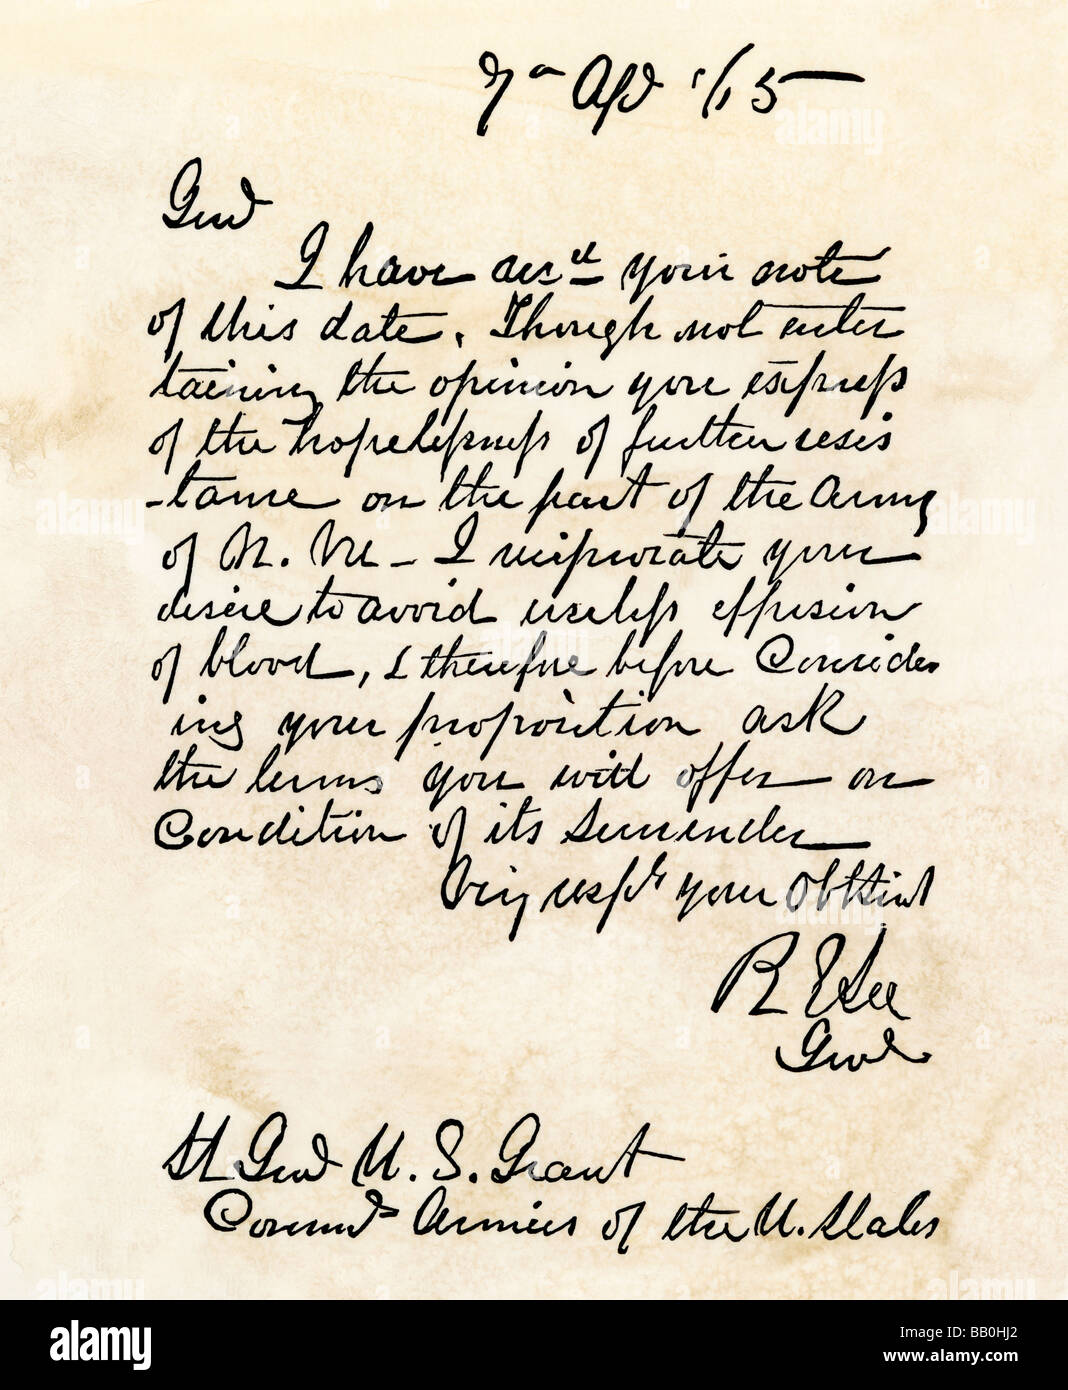 7th Apl '65
Genl
I have recd your note
of this date. Though not enter
taining the opinion you express
of the hopelessness of further resis
-tance on the part of the Army
of N. Va - I reciprocate your
desire to avoid useless effusion
of blood, & therefore before Consider
ing your proposition ask
the terms you will offer on
Condition of its surrender
Very respy your Obt Servt
R E Lee
Genl
Lt Genl U. S. Grant
Commd Armies of the U. States
alamy
Image ID: BB0HJ2
www.alamy.com